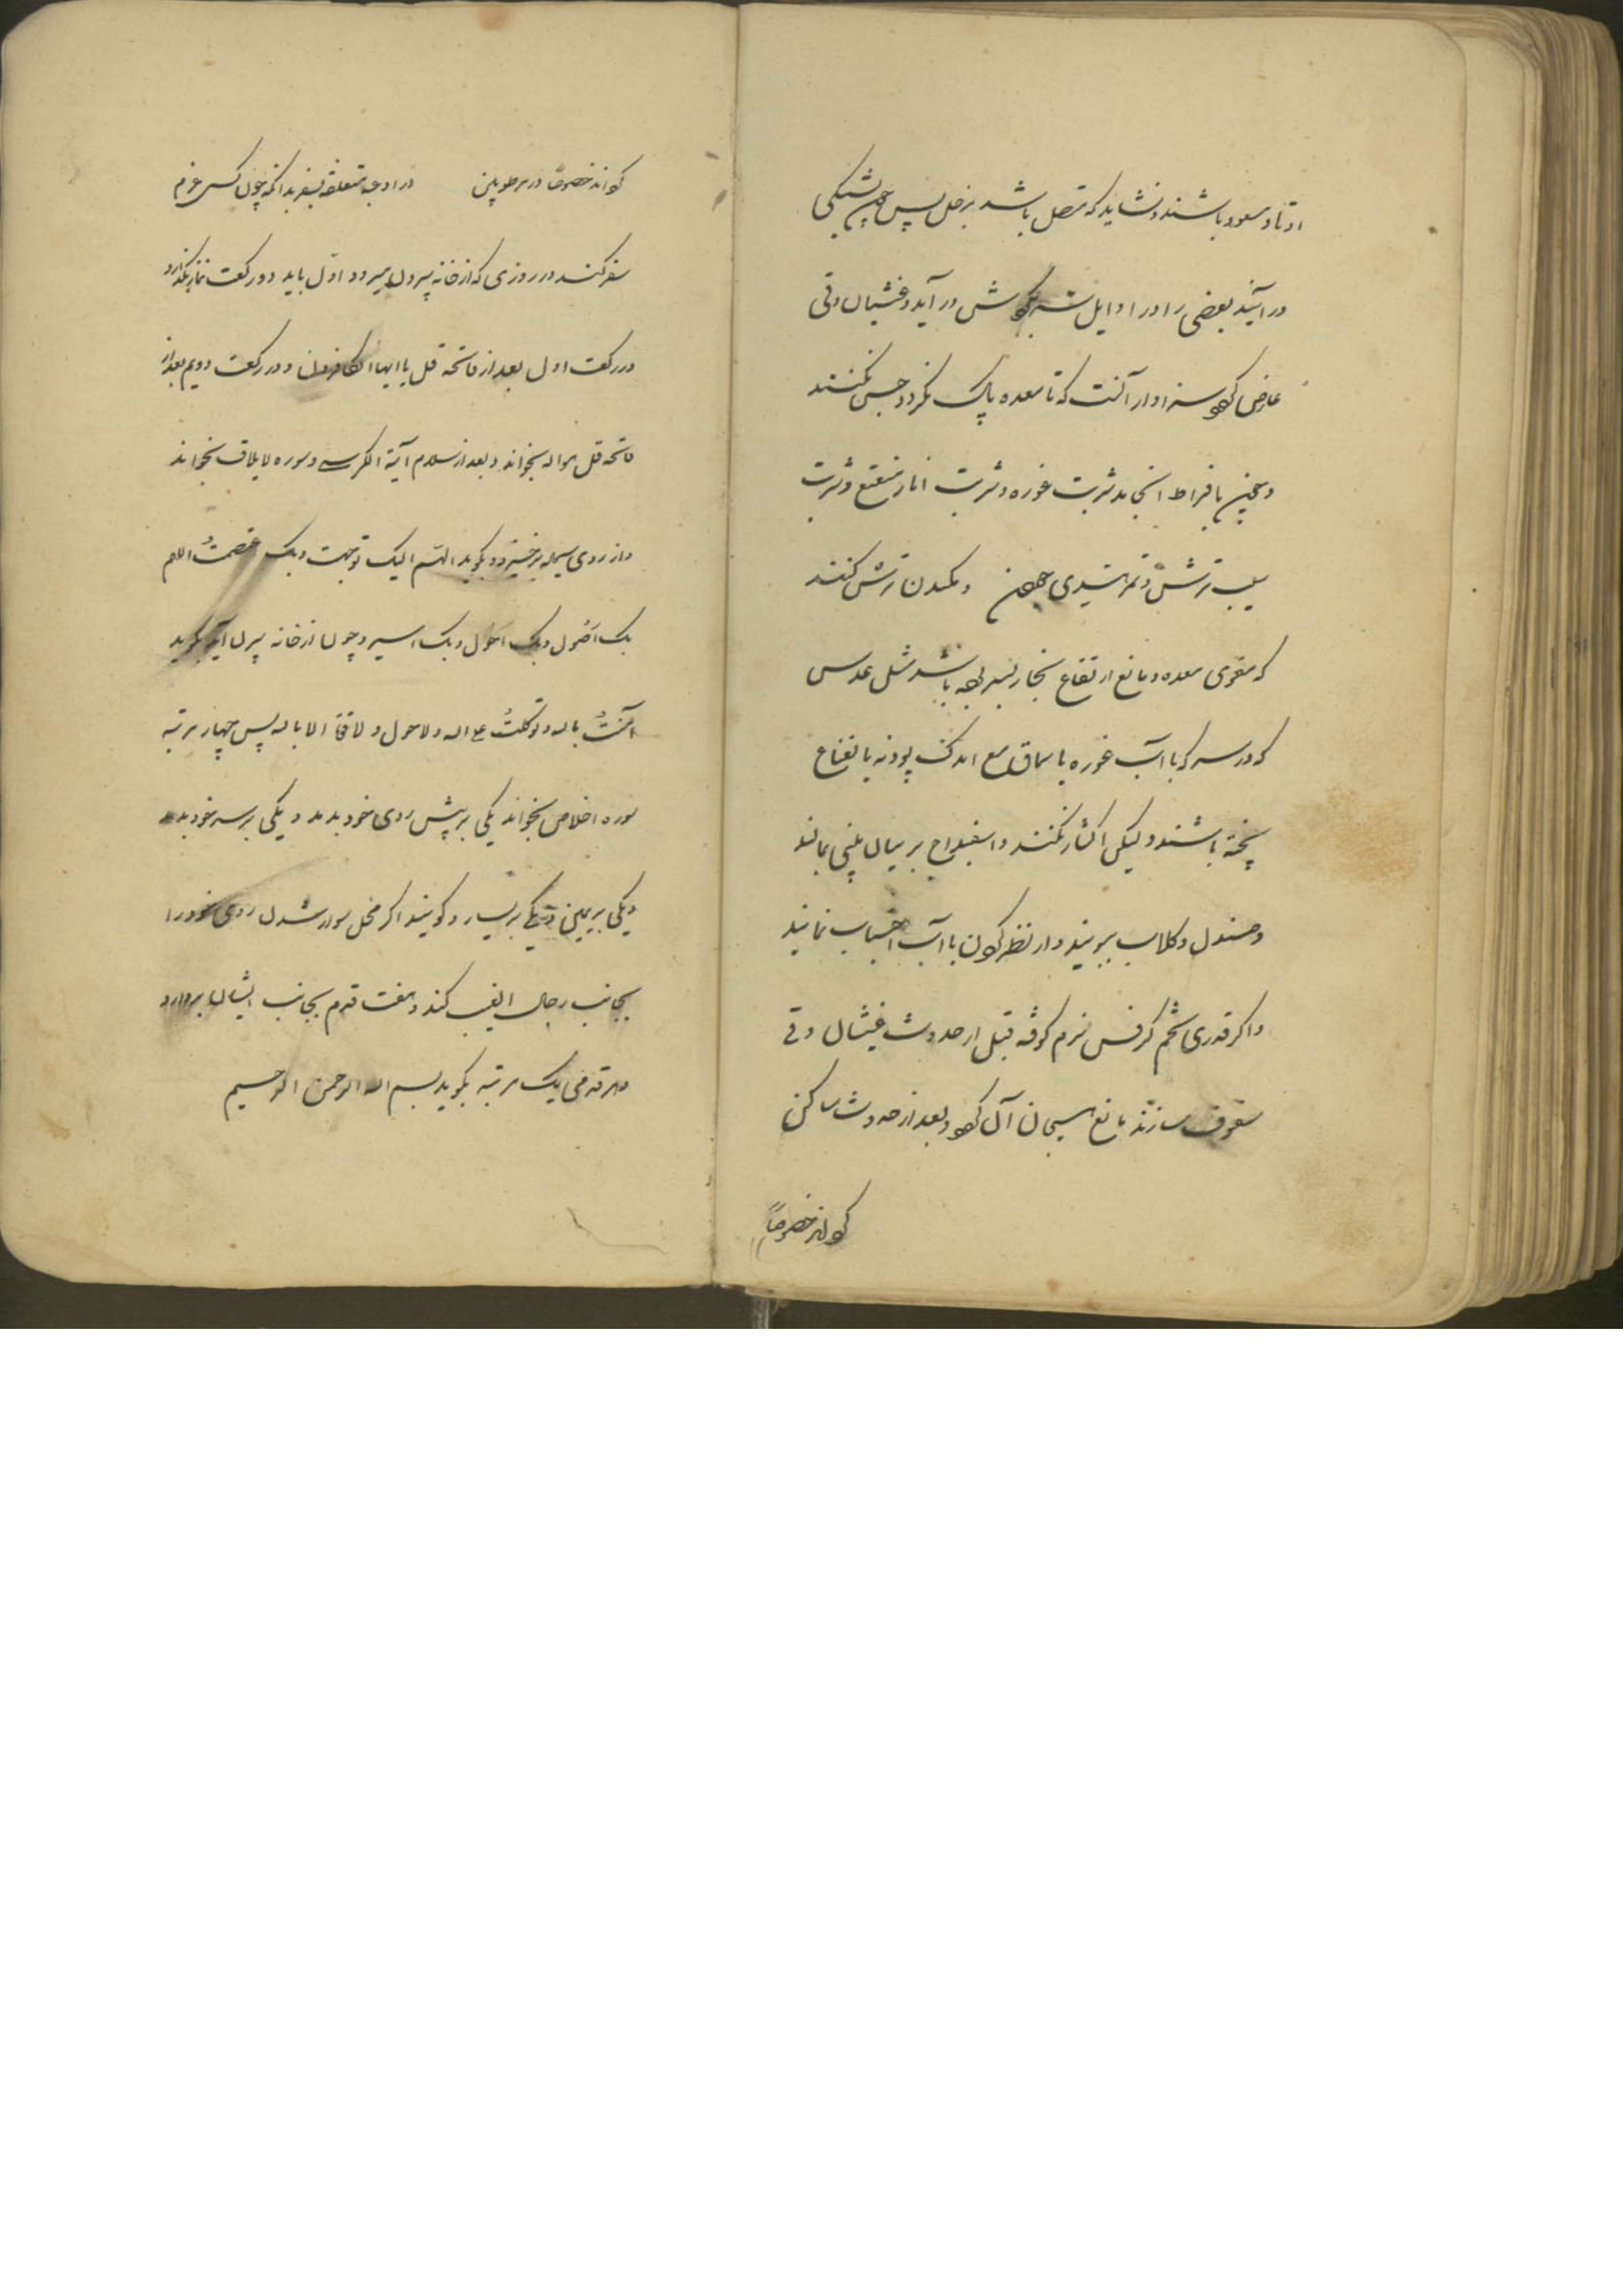 اوتاد سعود باشند و نشاید که متصل باشد بزحل پس چون بکشتی
در آیند بعضی را در اوایل سر بگردش در آید و غشیان و قی
عارض گردد سزاوار آنست که تا معده پاک نگردد حبس نکنند
و چون بافراط انجامد شربت غوره و شربت انار منعنع و شربت
سیب ترش و تمر هندی و مکیدن ترش کنند
که مقوی معده و مانع ارتفاع بخار بسر باشد مثل عدس
که در سرکه یا آب غوره یا سماق مع اندک پودنه یا نعناع
پخته باشند و لیکن اکثار نکنند و اسفیداج بر
و صندل و گلاب ببویند و از نظر کردن بآب اجتناب نمایند
و اگر قدری تخم کرفس نرم کوفته قبل از حدوث غثیان و قی
سفوف سازند مانع هیجان آن گردد و بعد از حدوث ساکن
گرداند خصوصاً
گرداند خصوصاً در در ادعیه متعلقه بسفر بدانکه چون کسی عزم
سفر کند در روزی که از خانه بیرون میرود اول باید دو رکعت نماز بگذارد
در رکعت اول بعد از فاتحه قل یا ایها الکافرون و در رکعت دویم بعد از
فاتحه قل هو الله بخواند و بعد از سلام آیة الکرسی و سوره لایلاف بخواند
و از روی برخیزد و بگوید اللهم الیک توجهت و بک اعتصمت اللهم
بک اصول و بک احول و بک اسیر و چون از خانه بیرون آید بگوید
آمنت بالله و توکلت علی الله و لا حول و لا قوة الا بالله پس چهار مرتبه
سوره اخلاص بخواند یکی بر پیش روی خود بدمد و یکی بر سر خود بدمد
و یکی بر یمین و یکی بر یسار و گویند اگر محل سوار شدن روی خود را
بجانب رجال الغیب کند و هفت قدم بجانب ایشان بردارد
و هر قدمی یک مرتبه بگوید بسم الله الرحمن الرحیم